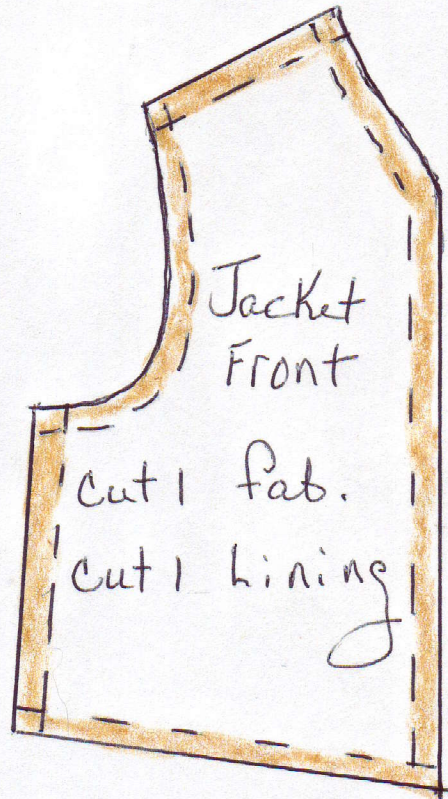 Jacket
Front
cut 1 fab.
cut 1 Lining